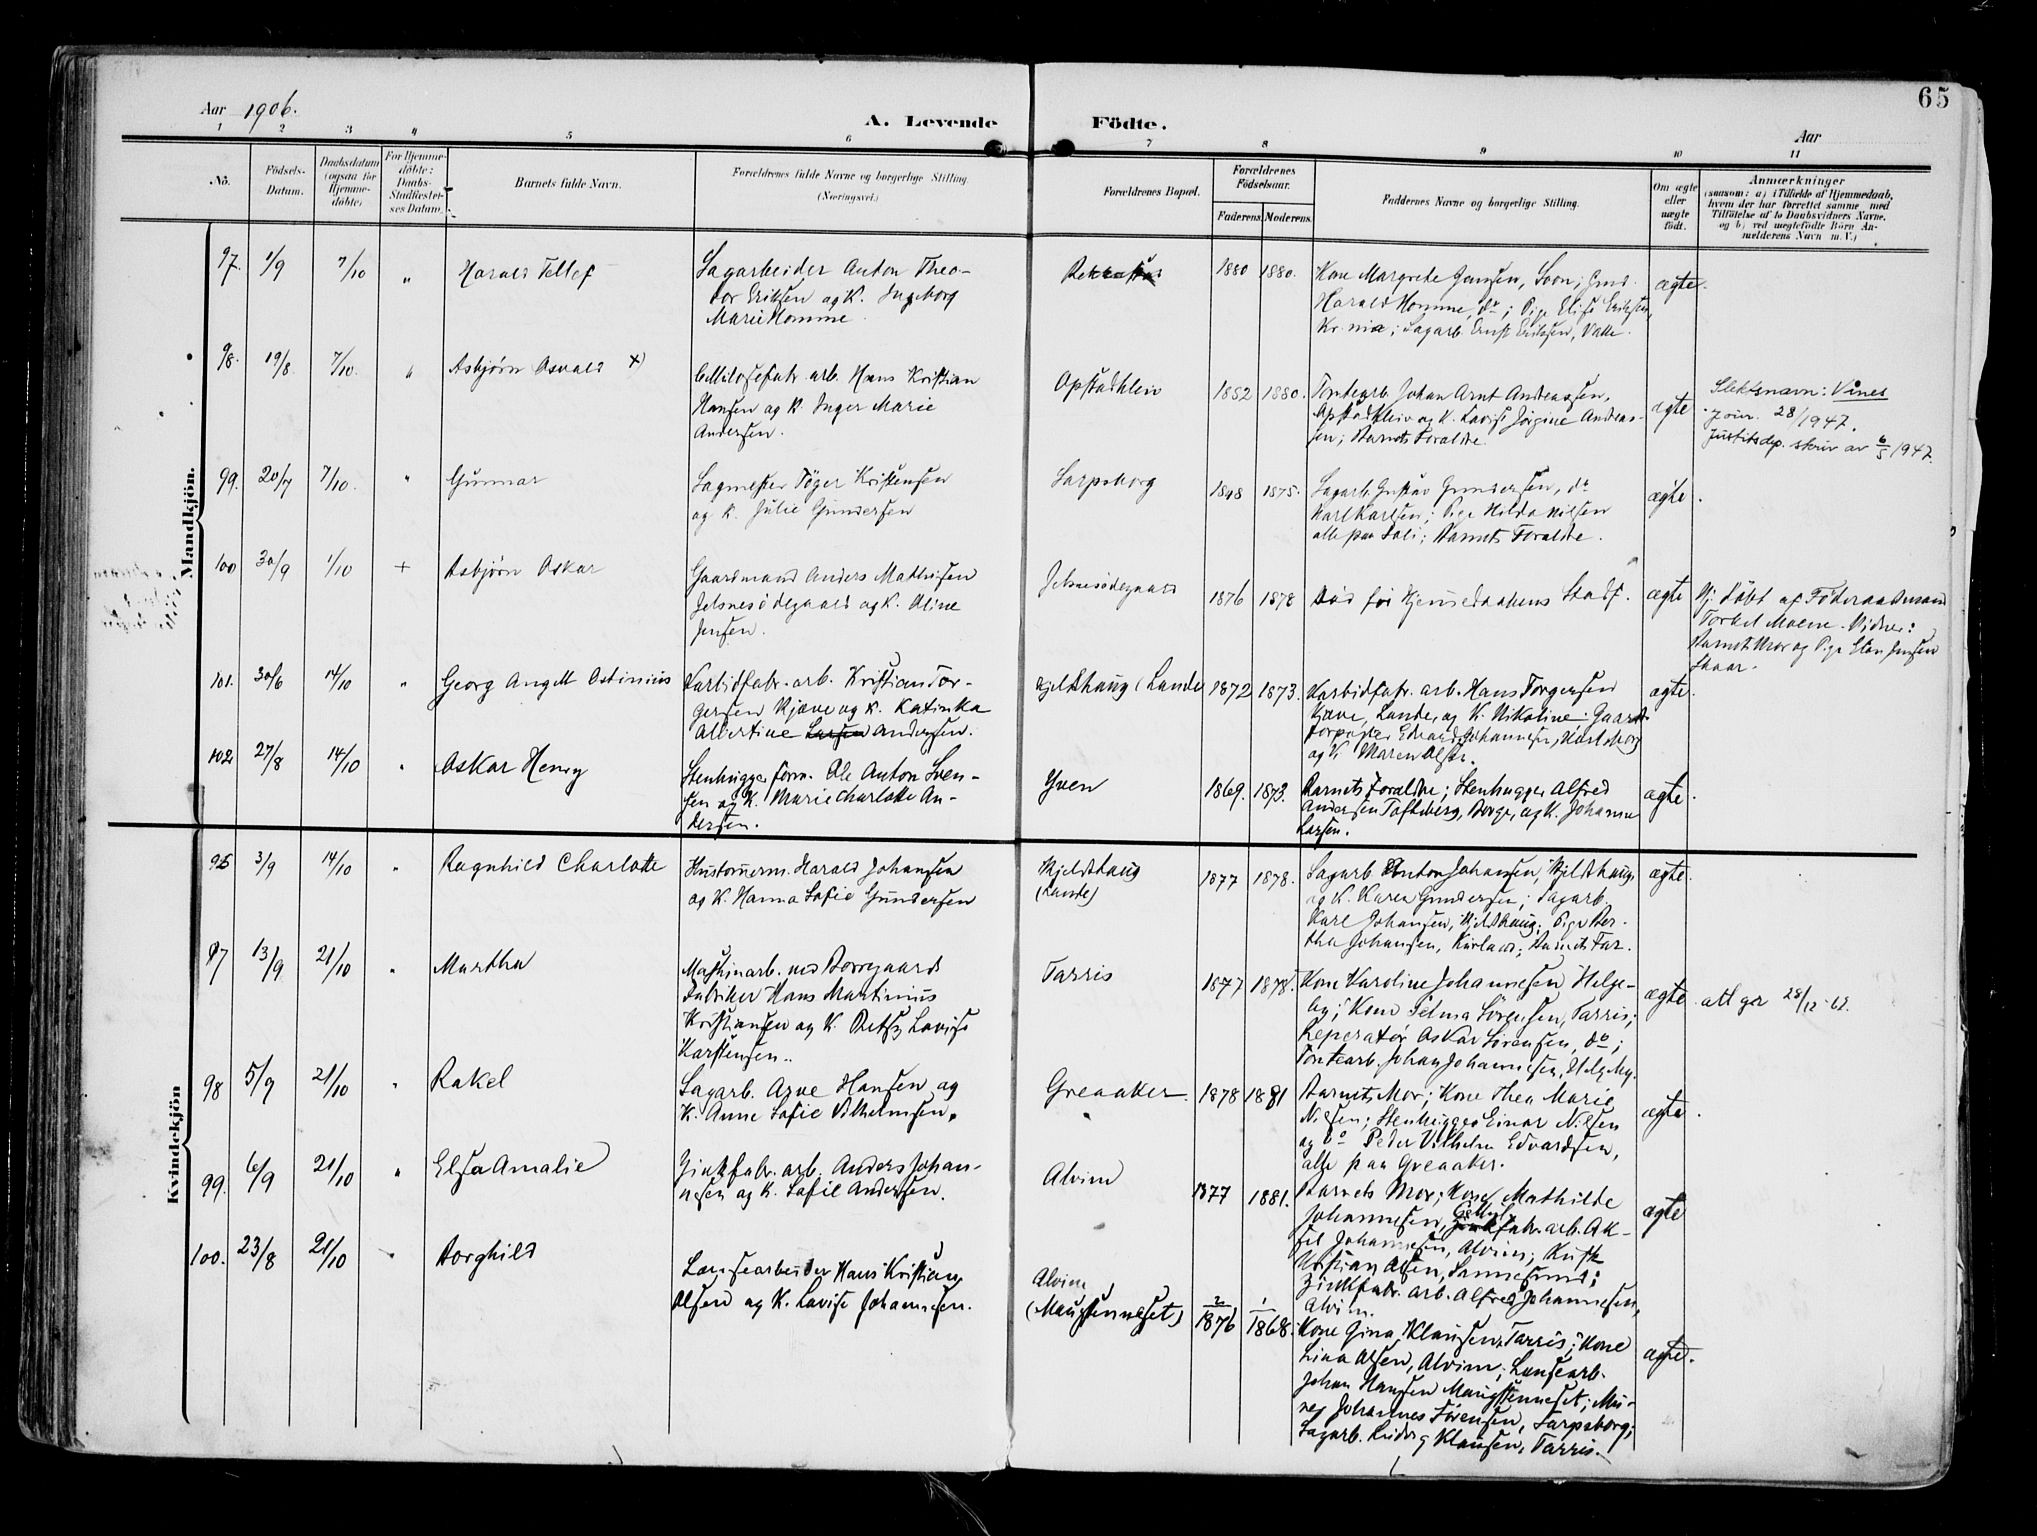 65
Aar 1906.
A. Levende Födte.
Aar
1 2 3 4 5 6 7 8 9 10 11
Nö.
Födsels-
Datum.
Daabsdatum
(ogsaa for
Hjemme-
döbte)
For Hjemme-
döbte:
Daabs-
Stadfæstel-
ses Datum.
Barnets fulde Navn.
Forældrenes fulde Navne og borgerlige Stilling
(Næringsvei.)
Forældrenes Bopæl.
Forældrenes
Födselsaar.
Faderens. Moderens.
Faddernes Navne og borgerlige Stilling.
Om ægte
eller
uægte
födt.
Anmærkninger
(saasom: a) i Tilfælde af Hjemmedaab,
hvem der har forrettet samme med
Tilföielse af to Daabsvidners Navne,
og b) ved uægtefödte Börn An-
melderens Navn m. V.)
Mandkjön.
97. 1/9 7/10 " Harald Tellef
Sagarbeider Anton Theo-
dor Eriksen og K. Ingeborg
Marie Homme.
1880 1880.
Kone Margrethe Jensen, Soon;
Harald Homme, do; Pige Elise Eriksen,
Kr.nia; Sagarb. Ernst Eriksen, Valle.
ægte.
98. 19/8 7/10. " Asbjørn Osvald x)
Cellulosefabr. arb. Hans Kristian
Hansen og K. Inger Marie
Andersen.
Opstadkleiv
1882 1880.
Tomtearb. Johan Arnt Andreassen,
Opstadkleiv og K. Lovise Jørgine Andreas-
sen; Barnets Foraldre
ægte
Slektsnavn: Vines
28/1947.
Justitsdep. skriv av 6/5 1947.
99. 20/7 7/10. " Gunnar
Sagmester Tøger Kristensen
og K. Julie Gundersen
Sarpsborg
1848 1875.
Sagarb. Gustav Gundersen, do
Karl Karlsen; Pige Hilda Nilsen
alle paa Soli; Barnets Foraldre.
ægte.
100 30/9 1/10 + Asbjørn Oskar
Gaardmand Anders Mathisen
Jelsnesødegaard og K. Oline
Jensen.
Jelsnesødegaard
1876 1878
Død før Hjemmedaabens Stadf.
ægte
Hj. døbt af Føderaadsmand
Torkel Moene. Vidner:
Barnets Mor og Pige Jensen
Skaar.
101. 30/6 14/10 " Georg Angell Ostinius
Karbidfabr. arb. Kristian Tor-
gersen Kjøve og K. Katinka
Albertine Larsen Andersen.
Kjeldshaug (Lande
1872 1873.
Karbidfabr. arb. Hans Torgersen
Kjøve, Lande, og K. Nikoline; Gaard-
forpagter Edvard Johannesen, Karlsborg
og K. Maren Olsen.
ægte.
102 27/8 14/10 " Oskar Henry
Stenhuggerform. Ole Anton Sven-
sen og K. Marie Charlotte An-
dersen.
Yven
1869. 1873.
Barnets Foraldre; Stenhugger Alfred
Andersen Tofteberg, Borge, og K. Johanne
Larsen.
ægte.
Kvindekjön
96 3/9 14/10 " Ragnhild Charlotte
Hustømrerm. Harald Johansen
og K. Hanna Sofie Gundersen
Kjeldshaug
(Lande)
1877 1878.
Sagarb. Anton Johansen, Kjeldshaug,
og K. Karen Gundersen; Sagarb.
Karl Johansen, Kjeldshaug; Pige Ber-
tha Johansen, Barnets Far.
ægte.
97 13/9 21/10 " Martha
Maskinarb. ved Borregaards
Fabriker Hans Martinius
Kristiansen og K. Betsy Lovise
Karstensen.
Tarris
1877 1878.
Kone Karoline Johannesen Helge-
by; Kone Selma Sørensen, Tarris;
Reparatør Oskar Sørensen, do;
Tomtearb. Johan Johannesen, Helgeby.
ægte.
att gr 28/12-62.
98 5/9 21/10 " Rakel
Sagarb. Arne Hansen og
K. Anne Sofie Vilhelmsen.
Greaaker.
1878 1881
Barnets Mor; Kone Thea Marie
Nilsen; Stenhugger Einar Nilsen
og do Peder Vilhelm Edvardsen,
alle paa Greaaker.
ægte.
99. 6/9 21/10 " Elsa Amalie
Zinkfabr. arb. Anders Johan-
nesen og K. Sofie Andersen.
Alvim
1877 1881.
Barnets Mor; Kone Mathilde
Johannesen, Cellul. fabr. arb. Ak-
sel Johannesen, Alvim; Kusk
Kristian Olsen, Sannesund;
Zinkfabr. arb. Alfred Johannesen,
Alvim.
ægte
100. 23/8 21/10 " Borghild
Lænsearbeider Hans Kristian
Olsen og K. Lovise Johannesen.
Alvim
(Maugstenneset)
2/1876 1/1868.
Kone Gina Klausen, Tarris; Kone
Lina Olsen, Alvim; Lænsearb.
Johan Hansen Maugstenneset; Mu-
rer Johannes Sørensen, Sarpsborg;
Sagarb. Ludvig Klausen, Tarris.
ægte.